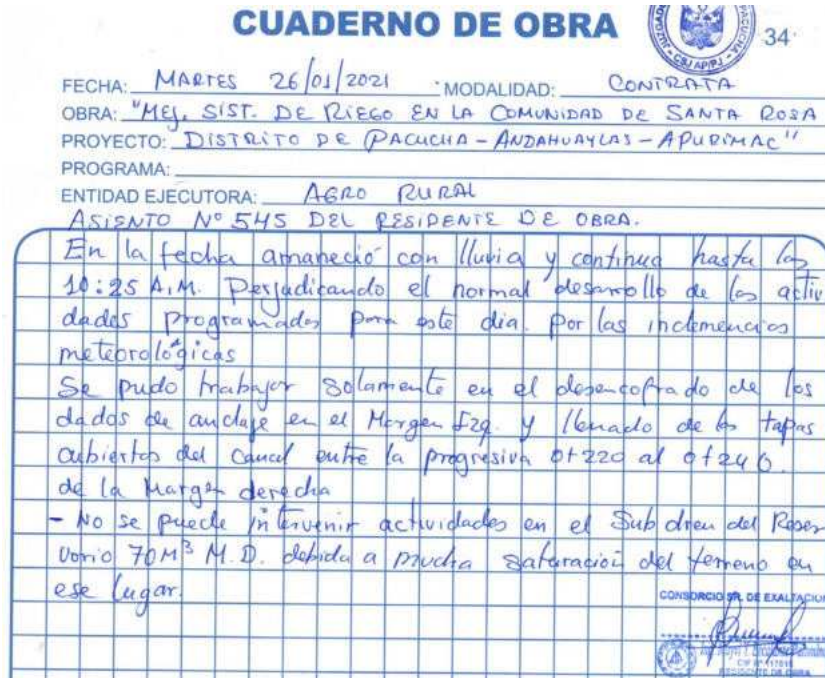 CUADERNO DE OBRA
34
JUZGADO
PACUCHA
CSJAP/PJ
FECHA: MARTES 26/01/2021 MODALIDAD: CONTRATA
OBRA: "MEJ. SIST. DE RIEGO EN LA COMUNIDAD DE SANTA ROSA
PROYECTO: DISTRITO DE PACUCHA - ANDAHUAYLAS - APURIMAC"
PROGRAMA:
ENTIDAD EJECUTORA: AGRO RURAL
ASIENTO Nº 545 DEL RESIDENTE DE OBRA.
En la fecha amaneció con lluvia y continua hasta las
10:25 A.M. Perjudicando el normal desarrollo de las activi
dades programadas para este dia. Por las inclemencias
meteorológicas
Se pudo trabajar solamente en el desencofrado de los
dados de anclaje en el Margen Izq. y llenado de las tapas
cubiertas del canal entre la progresiva 0+220 al 0+240.
de la Margen derecha
- No se puede intervenir actividades en el Sub dren del Reser
vorio 70M³ M.D. debido a mucha saturación del terreno en
ese lugar.
CONSORCIO SR. DE EXALTACION
RESIDENTE DE OBRA